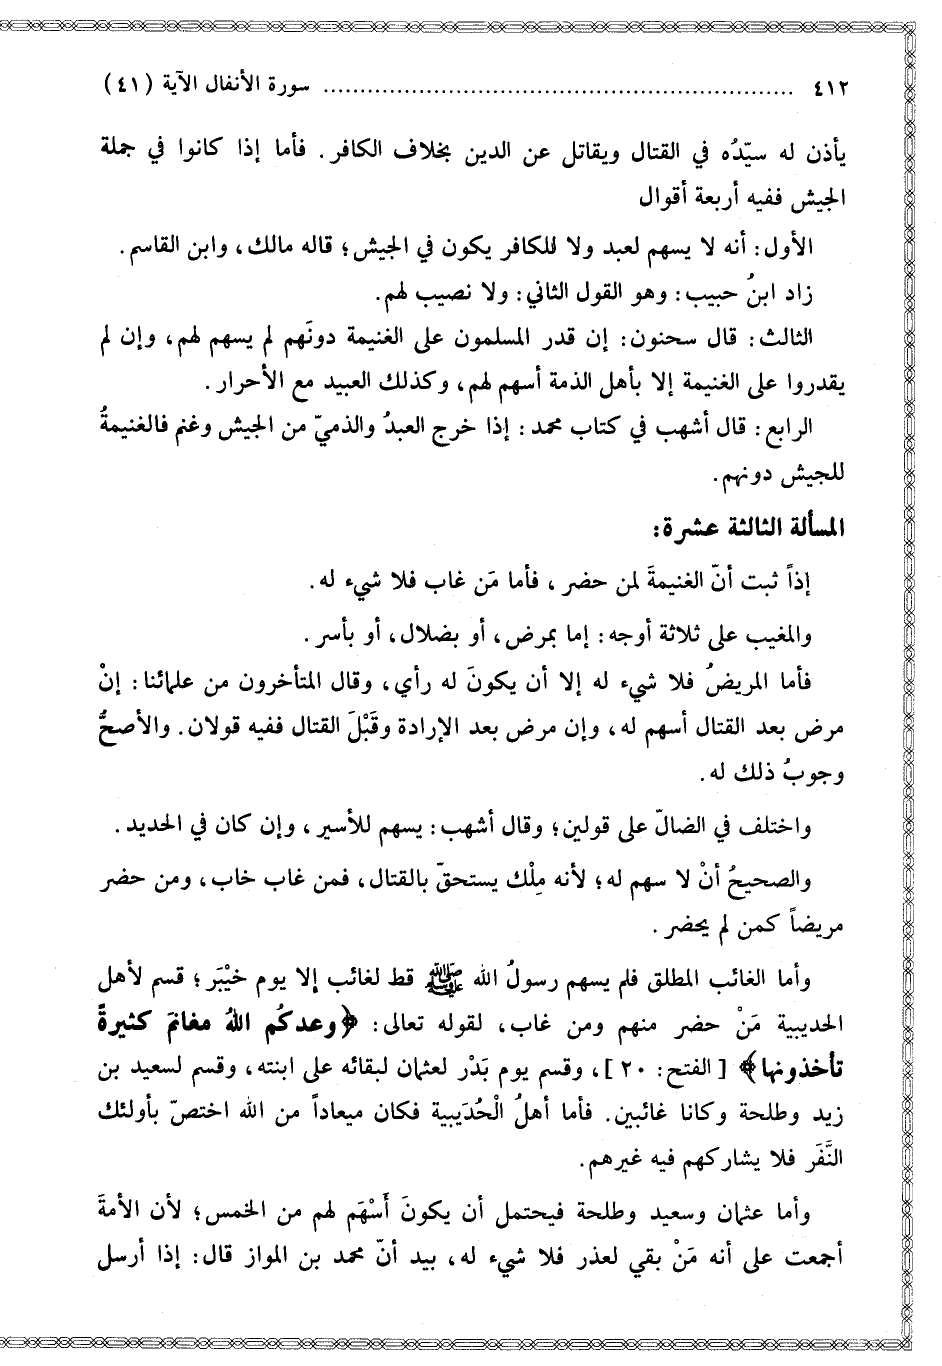 ٤١٢ ........................................................................ سورة الأنفال الآية (٤١)
يأذن له سيّدُه في القتال ويقاتل عن الدين بخلاف الكافر. فأما إذا كانوا في جملة
الجيش ففيه أربعة أقوال
الأول: أنه لا يسهم لعبد ولا للكافر يكون في الجيش؛ قاله مالك، وابن القاسم.
زاد ابنُ حبيب: وهو القول الثاني: ولا نصيب لهم.
الثالث: قال سحنون: إن قدر المسلمون على الغنيمة دونَهم لم يسهم لهم، وإن لم
يقدروا على الغنيمة إلا بأهل الذمة أسهم لهم، وكذلك العبيد مع الأحرار.
الرابع: قال أشهب في كتاب محمد: إذا خرج العبدُ والذميّ من الجيش وغنم فالغنيمةُ
للجيش دونهم.
المسألة الثالثة عشرة:
إذاً ثبت أنّ الغنيمةَ لمن حضر، فأما مَن غاب فلا شيء له.
والمغيب على ثلاثة أوجه: إما بمرض، أو بضلال، أو بأسر.
فأما المريضُ فلا شيء له إلا أن يكونَ له رأي، وقال المتأخرون من علمائنا: إنْ
مرض بعد القتال أسهم له، وإن مرض بعد الإرادة وقَبْلَ القتال ففيه قولان. والأصحُّ
وجوبُ ذلك له.
واختلف في الضالّ على قولين؛ وقال أشهب: يسهم للأسير، وإن كان في الحديد.
والصحيحُ أنْ لا سهم له؛ لأنه مِلْك يستحقّ بالقتال، فمن غاب خاب، ومن حضر
مريضاً كمن لم يحضر.
وأما الغائب المطلق فلم يسهم رسولُ الله ﷺ قط لغائب إلا يوم خيْبَر؛ قسم لأهل
الحديبية مَنْ حضر منهم ومن غاب، لقوله تعالى: ﴿وعدكُم اللهُ مغانمَ كثيرةً
تأخذونها﴾ [الفتح: ٢٠]، وقسم يوم بَدْر لعثمان لبقائه على ابنته، وقسم لسعيد بن
زيد وطلحة وكانا غائبين. فأما أهلُ الْحُدَيبية فكان ميعاداً من الله اختصّ بأولئك
النَّفَر فلا يشاركهم فيه غيرهم.
وأما عثمان وسعيد وطلحة فيحتمل أن يكونَ أَسْهَم لهم من الخمس؛ لأن الأمةَ
أجمعت على أنه مَنْ بقي لعذر فلا شيء له، بيد أنّ محمد بن المواز قال: إذا أرسل